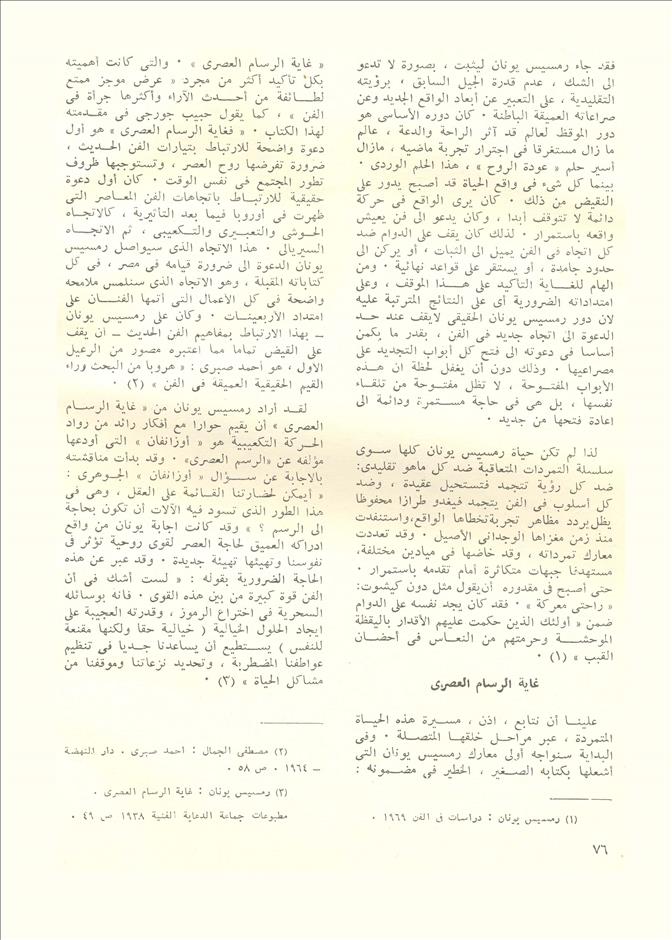 فقد جاء رمسيس يونان ليثبت ، بصورة لا تدعو
الى الشك ، عدم قدرة الجيل السابق ، برؤيته
التقليدية ، على التعبير عن أبعاد الواقع الجديد وعن
صراعاته العميقة الباطنة . كان دوره الأساسى هو
دور الموقظ لعالم قد آثر الراحة والدعة ، عالم
ما زال مستغرقا فى اجترار تجربة ماضيه ، مازال
أسير حلم « عودة الروح » ، هذا الحلم الوردى .
بينما كل شىء فى واقع الحياة قد أصبح يدور على
النقيض من ذلك . كان يرى الواقع فى حركة
دائمة لا تتوقف أبدا ، وكان يدعو الى فن يعيش
واقعه باستمرار . لذلك كان يقف على الدوام ضد
كل اتجاه فى الفن يميل الى الثبات ، أو يركن الى
حدود جامدة ، أو يستقر على قواعد نهائية . ومن
الهام للغـاية التأكيد على هـذا الموقف ، وعلى
امتداداته الضرورية أى على النتائج المترتبة عليه
لان دور رمسيس يونان الحقيقى لايقف عند حـد
الدعوة الى اتجاه جديد فى الفن ، بقدر ما يكمن
أساسا فى دعوته الى فتح كل أبواب التجديد على
مصراعيها . وذلك دون أن يغفل لحظة ان هـذه
الأبواب المفتوحة ، لا تظل مفتـوحة من تلقـاء
نفسها ، بل هى فى حاجة مستمرة ودائمة الى
اعادة فتحها من جديد .
لذا لم تكن حياة رمسيس يونان كلها سـوى
سلسلة التمردات المتعاقبة ضد كل ماهو تقليدى:
ضد كل رؤية تتجمد فتستحيل عقيدة ، وضـد
كل أسلوب فى الفن يتجمد فيغدو طرازا محفوظا
يظل يردد مظاهر تجربة تخطاها الواقع، واستنفدت
منذ زمن مغزاها الوجدانى الأصيل . وقد تعددت
معارك تمرداته ، وقد خاضها فى ميادين مختلفة،
مستهدفا جبهات متكاثرة أمام تقدمه باستمرار .
حتى أصبح فى مقدوره أن يقول مثل دون كيشوت:
« راحتى معركة » . فقد كان يجد نفسه على الدوام
ضمن « أولئك الذين حكمت عليهم الأقدار باليقظة
الموحشـة وحرمتهم من النعـاس فى أحضـان
القبب » (١) .
غاية الرسام العصرى
علينـا أن نتابع ، اذن ، مسـيرة هذه الحيـاة
المتمردة ، عبر مراحل خلقهـا المتصلـة . وفى
البداية سنواجه أولى معارك رمسيس يونان التى
أشعلها بكتابه الصـغير ، الخطير فى مضـمونه :
(١) رمسيس يونان : دراسات فى الفن ١٩٦٩ .
« غاية الرسام العصرى » . والتى كانت أهميته
بكل تأكيد أكثر من مجرد « عرض موجز ممتع
لطـائفة من أحـدث الآراء وأكثرها جرأة فى
الفن » ، كما يقول حبيب جورجى فى مقـدمته
لهذا الكتاب . « فغاية الرسام العصرى » هو أول
دعوة واضحة للارتباط بتيارات الفن الحـديث ،
ضرورة تفرضها روح العصر ، وتستوجبها ظروف
تطور المجتمع فى نفس الوقت . كان أول دعوة
حقيقية للارتبـاط بـاتجاهات الفن المعـاصر التى
ظهرت فى أوروبا فيما بعد التأثيرية ، كالاتجـاه
الحـوشى والتعبـيرى والتـكعيبى ، ثم الاتجـاه
السيريالى . هذا الاتجاه الذى سيواصل رمسيس
يونان الدعوة الى ضرورة قيامه فى مصر ، فى كل
كتاباته المقبلة ، وهو الاتجاه الذى سنلمس ملامحه
واضحة فى كل الأعمال التى أتمها الفنـان على
امتداد الأربعينـات . وكان على رمسيس يونان
ـ بهذا الارتباط بمفاهيم الفن الحديث ـ ان يقف
على النقيض تماما مما اعتبره مصور من الرعيل
الاول ، هو أحمد صبرى : « هروبا من البحث وراء
القيم الحقيقية العميقه فى الفن » (٢) .
لقـد أراد رمسيس يونان من « غاية الرسـام
العصرى » أن يقيم حوارا مع أفكار رائد من رواد
الحركة التكعيبية هو « أوزانفان » التى أودعها
مؤلفه عن «الرسم العصرى» . وقد بدأت مناقشته
بالاجابة عن سـؤال « أوزانفان » الجـوهرى :
« أيمكن لحضارتنا القـائمة على العقل ، وهى فى
هذا الطور الذى تسود فيه الآلات أن تكون بحاجة
الى الرسم ؟ » وقد كانت اجابة يونان من واقع
ادراكه العميق لحاجة العصر لقوى روحية تؤثر فى
نفوسنا وتهيئها تهيئة جديدة . وقد عبر عن هذه
الحاجة الضرورية بقوله : « لست أشك فى أن
الفن قوة كبيرة من بين هذه القوى . فانه بوسائله
السحرية فى اختراع الرموز ، وقدرته العجيبة على
ايجاد الحلول الخيالية ( خيالية حقا ولكنها مقنعة
للنفس ) يسـتطيع أن يساعدنا جـديا فى تنظيم
عواطفنا المضطربة ، وتحديد نزعاتنا وموقفنا من
مشاكل الحياة » (٣) .
(٢) مصطفى الجمال : احمد صبرى . دار النهضة
ـ ١٩٦٤ . ص ٥٨ .
(٣) رمسيس يونان : غاية الرسام العصرى .
مطبوعات جماعة الدعاية الفنية ١٩٣٨ ص ٤٩ .
٧٦